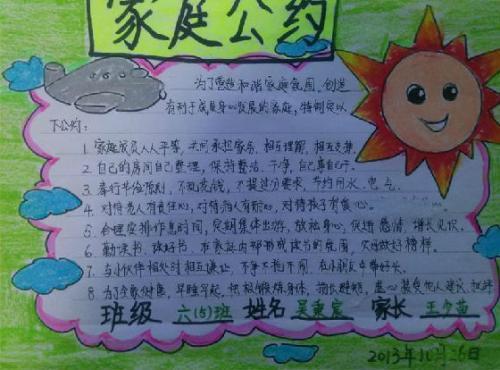 家庭公约
为了营造和谐家庭氛围,创造
有利于成员身心发展的家庭,特制定以
下公约:
1. 家庭成员人人平等,共同承担家务,相互理解,相互支持。
2. 自己的房间自己整理,保持整洁、干净,自己事自己干。
3. 奉行节俭原则,不乱花钱,不提过分要求,节约用水、电
4. 对待老人有责任心,对待病人有耐心,对待孩子有爱心。
5. 合理安排作息时间,定期集体出游,放松身心,促进感情,增长见识。
6. 勤读书,读好书,在家庭内部形成读书的氛围
7. 与小伙伴相处时相互谦让,不争不抢不闹,在小朋友中带好头。
8. 为了全家健康,早睡早起,积极锻炼身体,虚心接受他人建议
班级 六(5)班 姓名 吴秉宸 家长 王夕苗
2013年10月26日